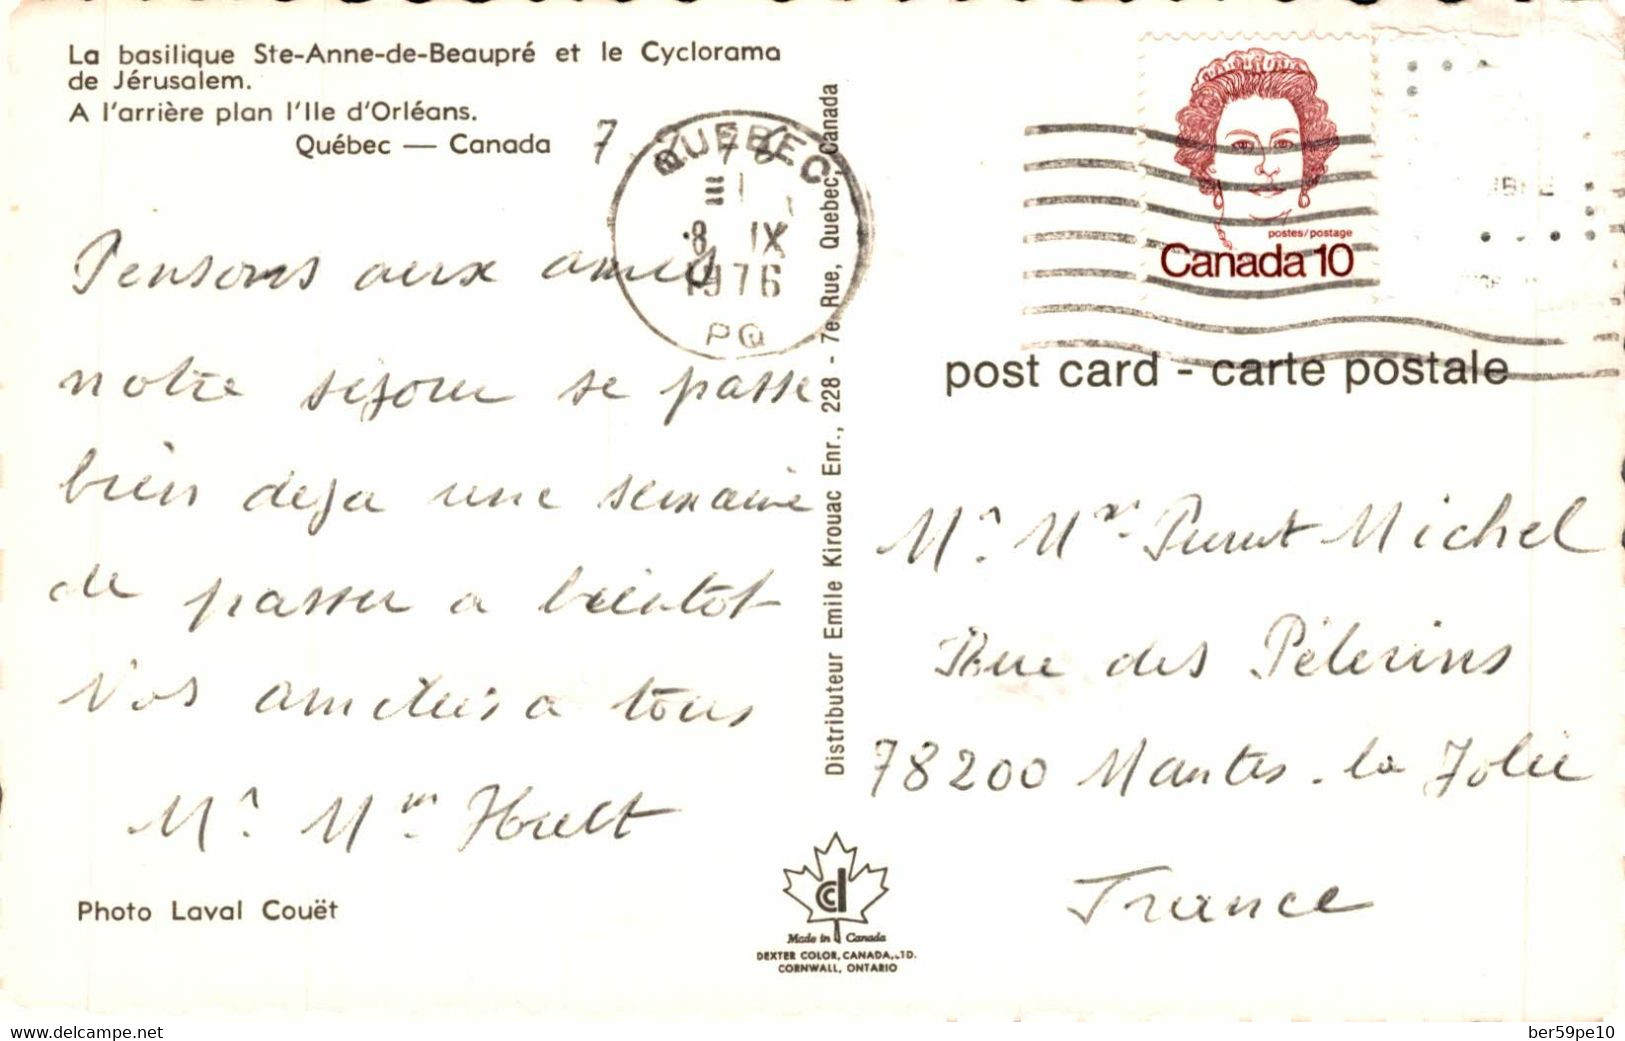 La basilique Ste-Anne-de-Beaupré et le Cyclorama
de Jérusalem.
A l'arrière plan l'Ile d'Orléans.
Québec — Canada
7
QUEBEC
8 IX
1976
PQ
Pensons aux amis
notre sejour se passe
bien deja une semaine
de passer a bientot
Nos amitiés a tous
Mr Mme
Photo Laval Couët
Distributeur Emile Kirouac Enr., 228 - 7e Rue, Quebec, Canada
Made in Canada
DEXTER COLOR, CANADA, LTD.
CORNWALL, ONTARIO
postes/postage
Canada 10
post card - carte postale
Mr Mme Michel
Rue des Pélerins
78200 Mantes la Jolie
France
www.delcampe.net
ber59pe10